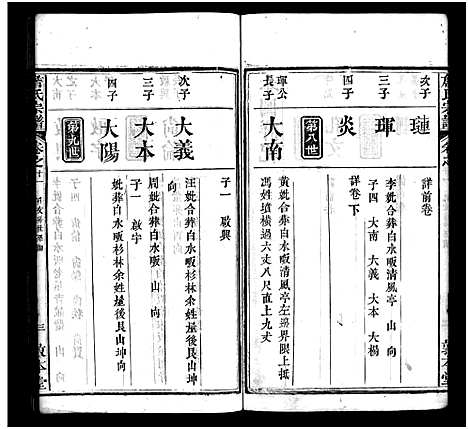 次子
璉
詳前卷
三子
琿
李妣合葬白水畈清風亭 山 向
子四 大南 大義 大本 大楊
四子
炎
詳卷下
第八世
琿公
長子
大南
黃妣合葬白水畈清風亭左邊界限上抵
馮姓墳橫過六丈八尺直上九丈
次子
大義
汪妣合葬白水畈杉林余姓屋後艮山坤
向
子一 啟興
三子
大本
周妣合葬白水畈 山 向
子一 啟宇
四子
大陽
妣葬白水畈杉林余姓屋後艮山坤向
第九世
三 敦本堂